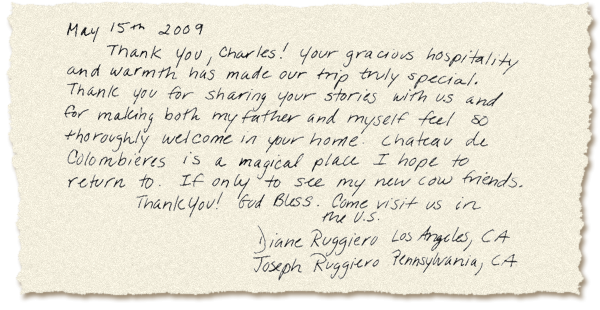 May 15th 2009
Thank you, Charles! Your gracious hospitality
and warmth has made our trip truly special.
Thank you for sharing your stories with us and
for making both my father and myself feel so
thoroughly welcome in your home. Chateau de
Colombières is a magical place I hope to
return to. If only to see my new cow friends.
Thank you! God Bless. Come visit us in
the U.S.
Diane Ruggiero Los Angeles, CA
Joseph Ruggiero Pennsylvania, CA